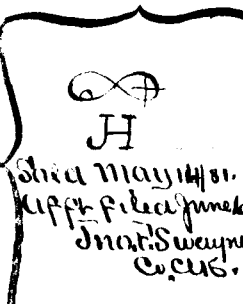 H
Said May 14/81.
Afft filed June
Jno. F. Swayn
Co. Clk.